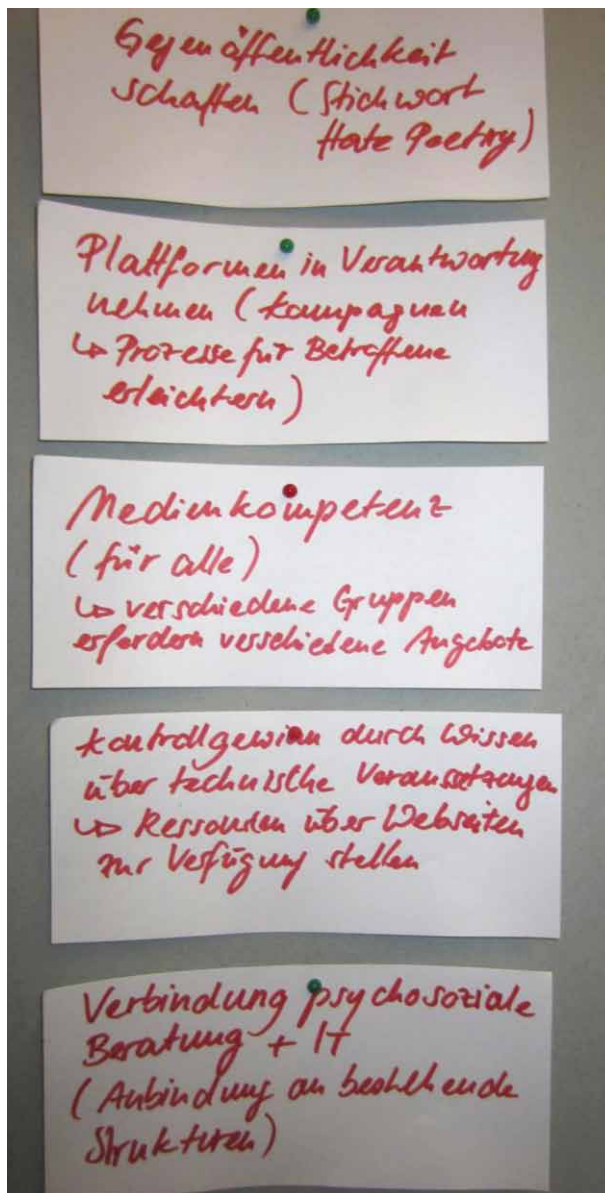 Gegenöffentlichkeit
schaffen (Stichwort
Hate Poetry)
Plattformen in Verantwortung
nehmen (Kampagnen
↳ Prozesse für Betroffene
erleichtern)
Medienkompetenz
(für alle)
↳ verschiedene Gruppen
erfordern verschiedene Angebote
Kontrollgewinn durch Wissen
über technische Voraussetzungen
↳ Ressourcen über Webseiten
zur Verfügung stellen
Verbindung psychosoziale
Beratung + IT
(Anbindung an bestehende
Strukturen)